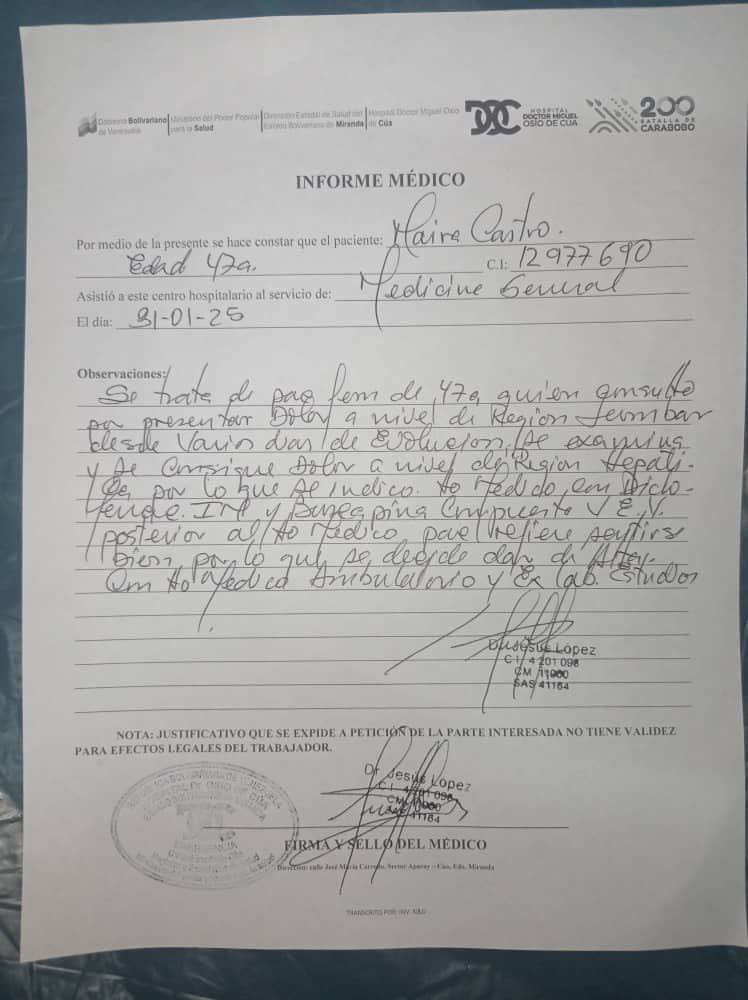 Gobierno Bolivariano de Venezuela
Ministerio del Poder Popular para la Salud
Dirección Estadal de Salud del Estado Bolivariano de Miranda
Hospital Doctor Miguel Osio de Cúa
HOSPITAL
DOCTOR MIGUEL
OSIO DE CUA
200
BATALLA DE
CARABOBO
INFORME MÉDICO
Por medio de la presente se hace constar que el paciente: Maira Castro.
Edad 47a. C.I: 12977690
Asistió a este centro hospitalario al servicio de: Medicine General
El día: 31-01-25
Observaciones:
Se trata de pac fem de 47a quien consulto
por presentar Dolor a nivel de Region Lumbar
desde Varios dias de Evolucion, Se examina
y se Consigue Dolor a nivel de Region Hepati-
ca por lo que se indico. tto Medico con Diclo-
fenac. IM y Compuesto V.E.V.
posterior al tto Medico, pac refiere sentirse
bien, por lo que se decide dar de Alta.
Con tto Medico Ambulatorio y Ex lab. Estudios
Dr. Jesús López
C I 4 201 096
CM 11900
SAS 41164
NOTA: JUSTIFICATIVO QUE SE EXPIDE A PETICIÓN DE LA PARTE INTERESADA NO TIENE VALIDEZ
PARA EFECTOS LEGALES DEL TRABAJADOR.
Dr. Jesús López
C I 4 201 096
41164
FIRMA Y SELLO DEL MÉDICO
Dirección: calle José María Carreño, Sector Aparay – Cúa, Edo. Miranda
TRANSCRITO POR: INV. N&G